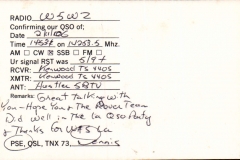 RADIO W5WZ
Confirming our QSO of;
Date
Time 1453Z on 14253.5 Mhz.
AM □ CW ☒ SSB □ FM □
Ur signal RST was 5/9+
RCVR: Kenwood TS 440S
XMTR: Kenwood TS 440S
ANT: Hustler 5BTV
Remarks: Great Talking With
You - Hope You & The Rover Team
Did well in the La QSO Party
& Thanks for
PSE, QSL, TNX 73, Dennis